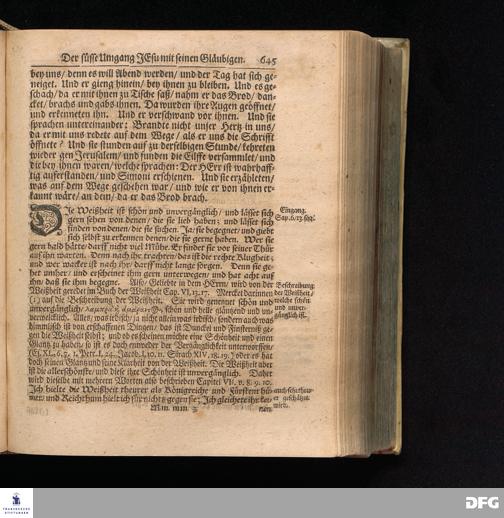 Der süsse Umgang JEsu mit seinen Gläubigen. 645
bey uns/ denn es will Abend werden/ und der Tag hat sich ge-
neiget. Und er gieng hinein/ bey ihnen zu bleiben. Und es ge-
schach/ da er mit ihnen zu Tische saß/ nahm er das Brod/ dan-
cket/ brachs und gabs ihnen. Da wurden ihre Augen geöffnet/
und erkenneten ihn. Und er verschwand vor ihnen. Und sie
sprachen untereinander: Brandte nicht unser Hertz in uns/
da er mit uns redete auf dem Wege/ als er uns die Schrifft
öffnete? Und sie stunden auf zu derselbigen Stunde/ kehreten
wieder gen Jerusalem/ und funden die Eilffe versammlet/ und
die bey ihnen waren/ welche sprachen: Der HErr ist warhaff-
tig auferstanden/ und Simoni erschienen. Und sie erzähleten/
was auf dem Wege geschehen war/ und wie er von ihnen er-
kannt wäre/ an dem/ da er das Brod brach.
DIe Weißheit ist schön und unvergänglich/ und lässet sich
gern sehen von denen/ die sie lieb haben; und lässet sich
finden von denen/ die sie suchen. Ja/ sie begegnet/ und giebt
sich selbst zu erkennen denen/ die sie gerne haben. Wer sie
gern bald hätte darff nicht viel Mühe. Er findet sie vor seiner Thür
auf ihn warten. Denn nach ihr trachten/ das ist die rechte Klugheit;
und wer wacker ist nach ihr/ darff nicht lange sorgen. Denn sie ge-
het umher/ und erscheinet ihm gern unterwegen/ und hat acht auf
ihn/ daß sie ihm begegne. Also/ Geliebte in dem HErrn/ wird von der
Weißheit geredet im Buch der Weißheit Cap. VI, 13. 17. Mercket darinnen
(1) auf die Beschreibung der Weißheit. Sie wird genennet schön und
unvergänglich/ schön und helle gläntzend und un-
verwelcklich. Alles/ was irdisch/ ja nicht allein was irdisch/ sondern auch was
himmlisch ist von erschaffenen Dingen/ das ist Dunckel und Finsterniß ge-
gen die Weißheit selbst; und ob es scheinen möchte eine Schönheit und einen
Glantz zu haben/ so ist es doch entweder der Vergänglichkeit unterworffen/
(Es. XL, 6. 7. 1. Petr. I, 24. Jacob. I, 10. 11. Sirach XIV, 18. 19.) oder es hat
doch seinen Glantz und seine Klarheit von der Weißheit. Die Weißheit aber
ist die allerschönste/ und diese ihre Schönheit ist unvergänglich. Daher
wird dieselbe mit mehren Worten also beschrieben Capitel VII, v. 8. 9. 10.
Ich hielte die Weißheit theurer als Königreiche und Fürstenthü-
mer/ und Reichthum hielt ich für nichts gegen sie; Ich gleichete ihr kei-
Mm mm 3 nen
Eingang.
Sap. 6/13. seq.
Beschreibung
der Weißheit/
welche schön
und unver-
gänglich ist.
auch
er geschätzet
wird.
FRANCKESCHE
STIFTUNGEN
DFG